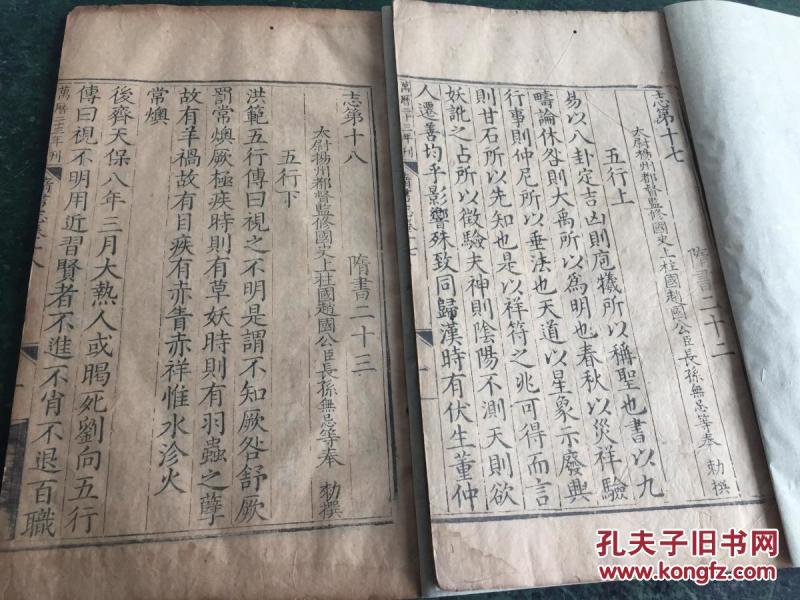 志第十七
隋書二十二
太尉揚州都督監修國史上柱國趙國公臣長孫無忌等奉
勅撰
五行上
易以八卦定吉凶則庖犧所以稱聖也書以九
疇論休咎則大禹所以爲明也春秋以災祥驗
行事則仲尼所以垂法也天道以星象示廢興
則甘石所以先知也是以祥符之兆可得而言
妖訛之占所以徵驗夫神則陰陽不測天則欲
人遷善均乎影響殊致同歸漢時有伏生董仲
萬曆二十三年刊
隋書志卷十七
志第十八
隋書二十三
太尉揚州都督監修國史上柱國趙國公臣長孫無忌等奉
勅撰
五行下
洪範五行傳曰視之不明是謂不知厥咎舒厥
罰常燠厥極疾時則有草妖時則有羽蟲之孽
故有羊禍故有目疾有赤眚赤祥惟水沴火
常燠
後齊天保八年三月大熱人或暍死劉向五行
傳曰視不明用近習賢者不進不肖不退百職
萬曆二十三年刊
隋書志卷十八
孔夫子旧书网
www.kongfz.com